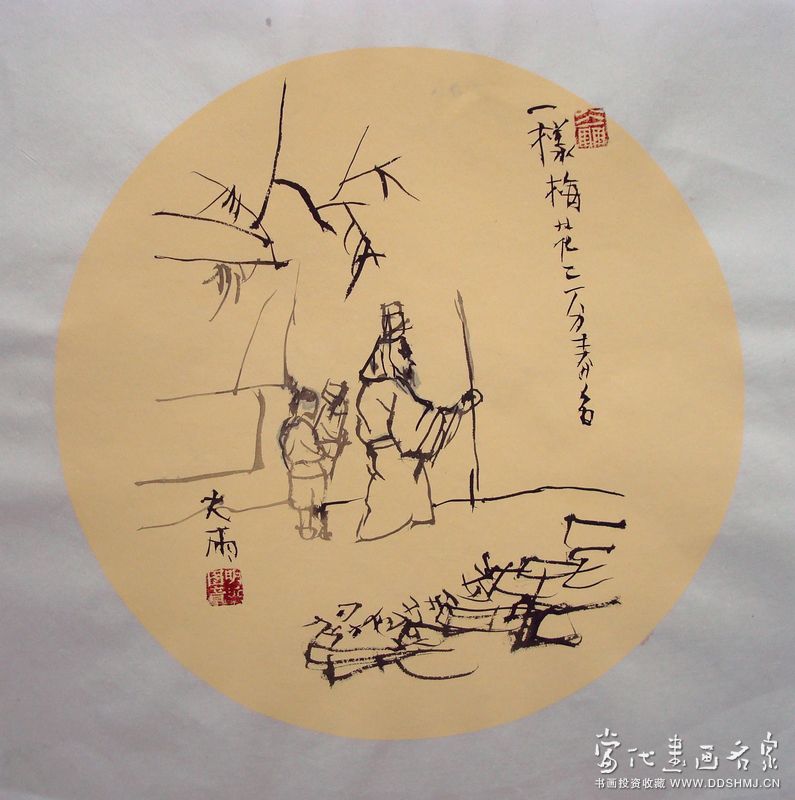 一樣梅花分春
雨
當代書画名家
书画投资收藏 WWW.DDSHMJ.CN